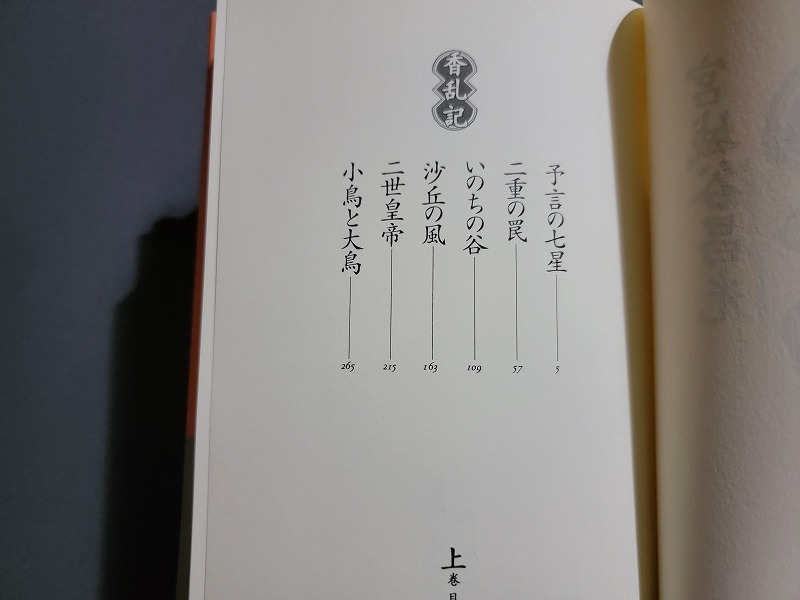 香乱記
予言の七星 5
二重の罠 57
いのちの谷 109
沙丘の風 163
二世皇帝 215
小鳥と大鳥 265
上巻目
宮城谷昌光